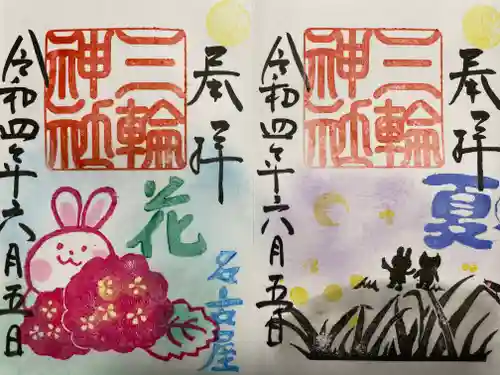 奉拝
三輪
神社
花
名古屋
令和四年六月五日
奉拝
三輪
神社
夏
令和四年六月五日